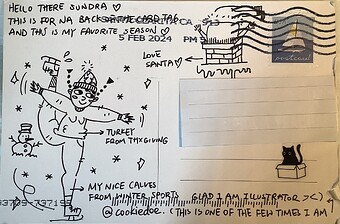 HELLO THERE SUNDRA ♡
THIS IS FOR NA BACK OF THE CARD TAG
AND THIS IS MY FAVORITE SEASON ♡
5 FEB 2024 PM
LOVE
SANTA ♡
TURKEY
FROM THXGIVING
MY NICE CALVES
FROM WINTER SPORTS
GLAD I AM ILLUSTRATOR >.<)
@cookiedoe. (THIS IS ONE OF THE FEW TIMES I AM